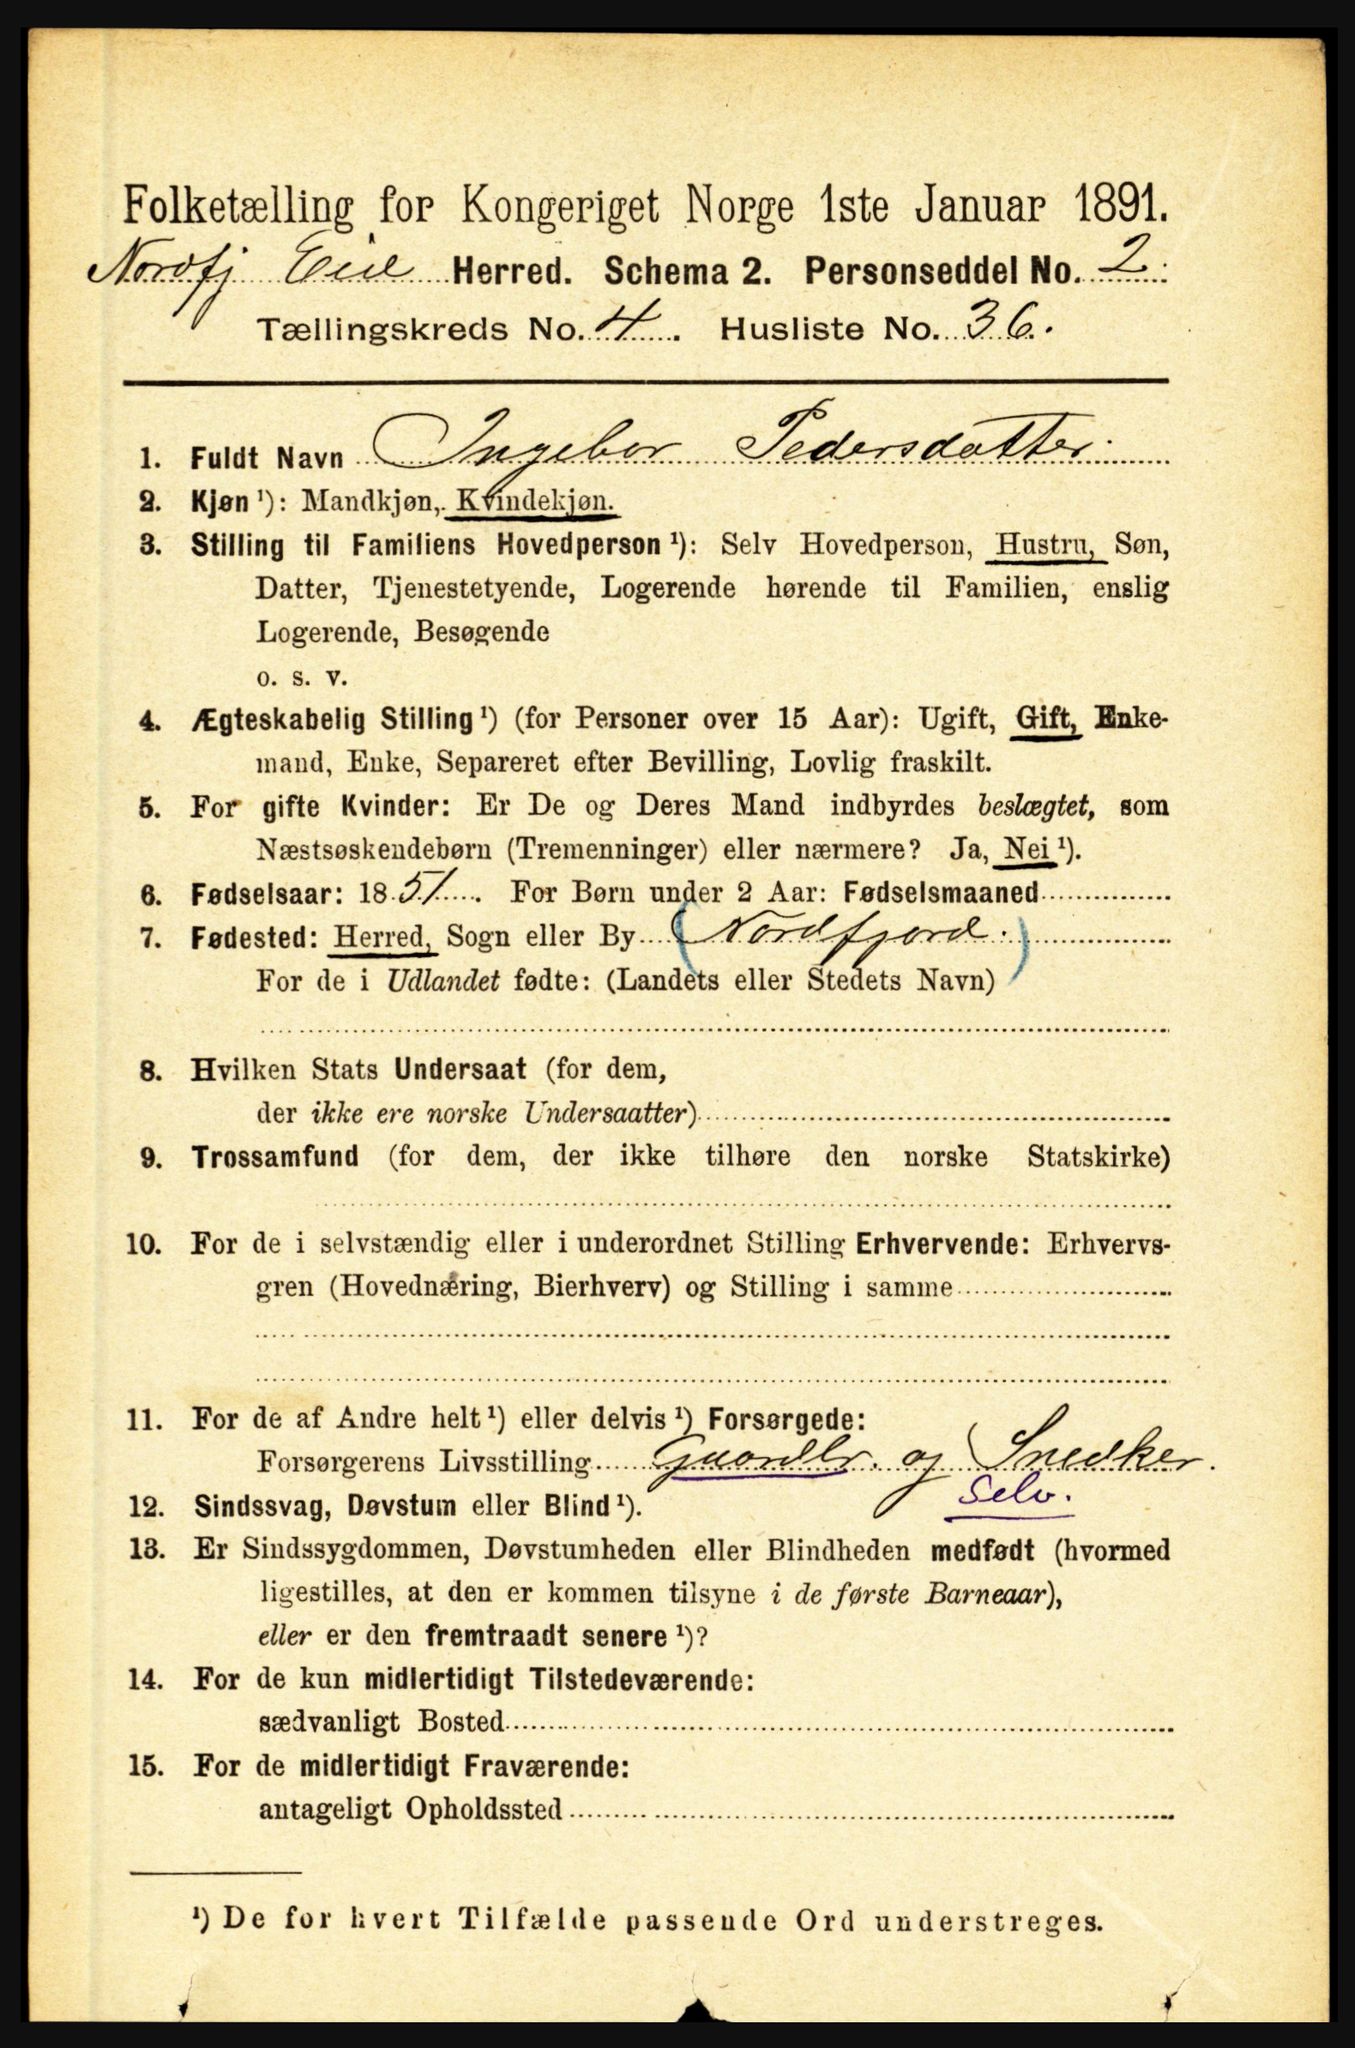 Folketælling for Kongeriget Norge 1ste Januar 1891.
Nordfj Eid Herred. Schema 2. Personseddel No. 2
Tællingskreds No. 4. Husliste No. 36.
1. Fuldt Navn Ingebor Pedersdatter
2. Kjøn¹): Mandkjøn, Kvindekjøn.
3. Stilling til Familiens Hovedperson¹): Selv Hovedperson, Hustru, Søn,
Datter, Tjenestetyende, Logerende hørende til Familien, enslig
Logerende, Besøgende
o. s. v.
4. Ægteskabelig Stilling¹) (for Personer over 15 Aar): Ugift, Gift, Enke-
mand, Enke, Separeret efter Bevilling, Lovlig fraskilt.
5. For gifte Kvinder: Er De og Deres Mand indbyrdes beslægtet, som
Næstsøskendebørn (Tremenninger) eller nærmere? Ja, Nei¹).
6. Fødselsaar: 1851. For Børn under 2 Aar: Fødselsmaaned
7. Fødested: Herred, Sogn eller By (Nordfjord.)
For de i Udlandet fødte: (Landets eller Stedets Navn)
8. Hvilken Stats Undersaat (for dem,
der ikke ere norske Undersaatter)
9. Trossamfund (for dem, der ikke tilhøre den norske Statskirke)
10. For de i selvstændig eller i underordnet Stilling Erhvervende: Erhvervs-
gren (Hovednæring, Bierhverv) og Stilling i samme
11. For de af Andre helt¹) eller delvis¹) Forsørgede:
Forsørgerens Livsstilling Gaardbr. og Snedker.
Selv.
12. Sindssvag, Døvstum eller Blind¹).
13. Er Sindssygdommen, Døvstumheden eller Blindheden medfødt (hvormed
ligestilles, at den er kommen tilsyne i de første Barneaar),
eller er den fremtraadt senere¹)?
14. For de kun midlertidigt Tilstedeværende:
sædvanligt Bosted
15. For de midlertidigt Fraværende:
antageligt Opholdssted
¹) De for hvert Tilfælde passende Ord understreges.